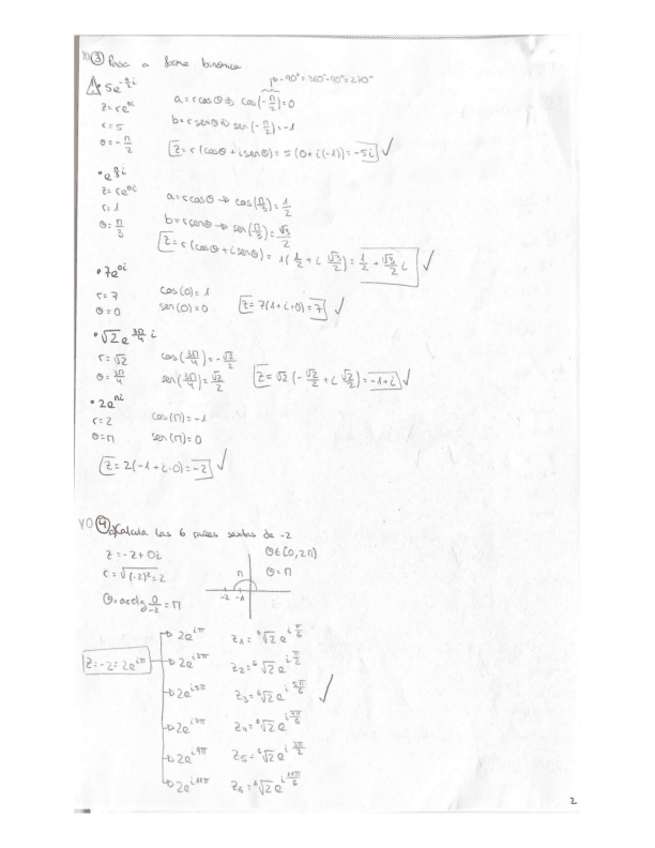 ③ Pasa a forma binómica
→ -90° = 360° - 90° = 270°
• 5e^{-π/2 i}
z = re^{θi} a = r cos θ → cos(-π/2) = 0
r = 5 b = r sen θ → sen(-π/2) = -1
θ = -π/2 z = r(cos θ + i sen θ) = 5(0 + i(-1)) = -5i ✓
• e^{π/3 i}
z = re^{θi} a = r cos θ → cos(π/3) = 1/2
r = 1 b = r sen θ → sen(π/3) = √3/2
θ = π/3 z = r(cos θ + i sen θ) = 1(1/2 + i √3/2) = 1/2 + √3/2 i ✓
• 7e^{0i}
r = 7 cos(0) = 1
θ = 0 sen(0) = 0 z = 7(1 + i·0) = 7 ✓
• √2 e^{3π/4 i}
r = √2 cos(3π/4) = -√2/2
θ = 3π/4 sen(3π/4) = √2/2 z = √2(-√2/2 + i √2/2) = -1 + i ✓
• 2e^{πi}
r = 2 cos(π) = -1
θ = π sen(π) = 0
z = 2(-1 + i·0) = -2 ✓
④ Calcula las 6 raíces sextas de -2
z = -2 + 0i θ ∈ [0, 2π)
r = √(-2)² = 2 π θ = π
θ = arctg 0/-2 = π -2 -1
→ 2e^{iπ} z₁ = ⁶√2 e^{i π/6}
z = -2 = 2e^{iπ} → 2e^{i3π} z₂ = ⁶√2 e^{i π/2}
→ 2e^{i5π} z₃ = ⁶√2 e^{i 5π/6} ✓
→ 2e^{i7π} z₄ = ⁶√2 e^{i 7π/6}
→ 2e^{i9π} z₅ = ⁶√2 e^{i 3π/2}
→ 2e^{i11π} z₆ = ⁶√2 e^{i 11π/6}
2